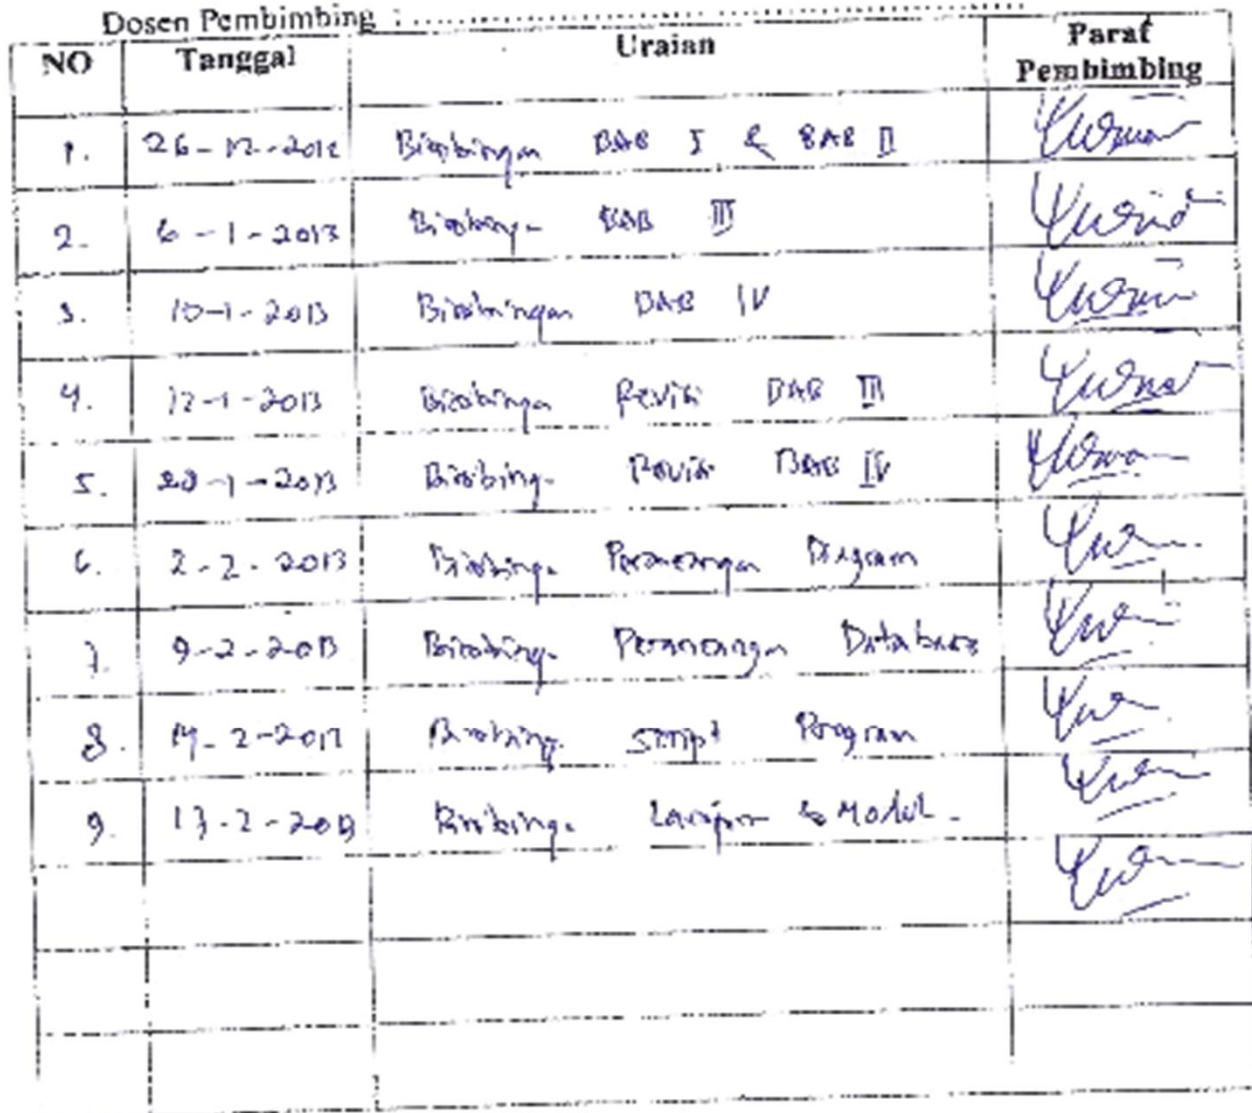 Dosen Pembimbing : ........................................
NO Tanggal Uraian Paraf Pembimbing
1. 26-12-2012 Bimbingan BAB I & BAB II
2. 6-1-2013 Bimbingan BAB III
3. 10-1-2013 Bimbingan BAB IV
4. 12-1-2013 Bimbingan Revisi BAB III
5. 28-1-2013 Bimbingan Revisi BAB IV
6. 2-2-2013 Bimbingan Perancangan Diagram
7. 9-2-2013 Bimbingan Perancangan Database
8. 2-2013 Bimbingan Script Program
9. 2-2013 Bimbingan & Modul